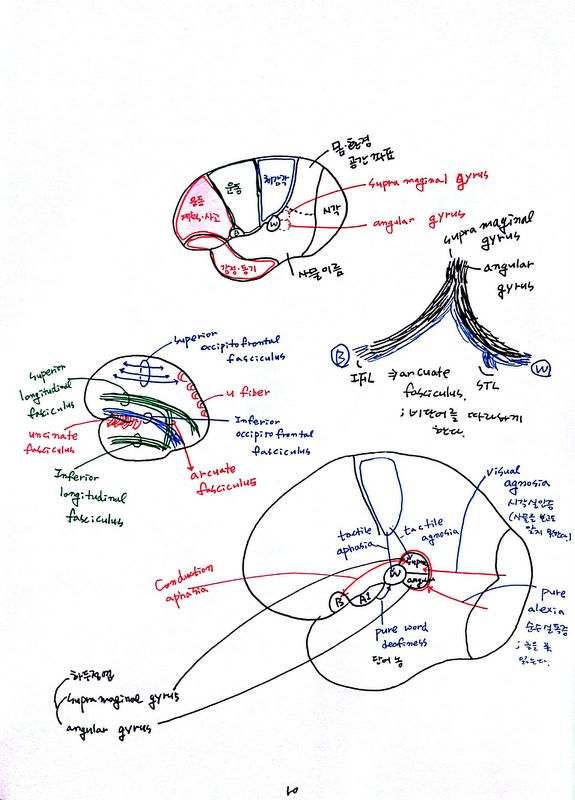 몸·환경
공간 좌표
supra maginal gyrus
angular gyrus
운동
계획·사고
운동
체감각
시각
B
W
감정·동기
사물이름
supra maginal
gyrus
angular
gyrus
B
W
IFL
STL
⇒ arcuate
fasciculus.
; 비단어를 따라하게
한다.
superior
occipitofrontal
fasciculus
superior
longitudinal
fasciculus
u fiber
uncinate
fasciculus
Inferior
occipitofrontal
fasciculus
arcuate
fasciculus
Inferior
longitudinal
fasciculus
visual
agnosia
시각실인증
(사물을 보고도
알지 못한다.)
tactile
aphasia
tactile
agnosia
Conduction
aphasia
supra
angular
W
B
A1
pure word
deafness
단어 농
pure
alexia
순수실독증
; 글을 못
읽는다.
하두정엽
supra maginal gyrus
angular gyrus
10